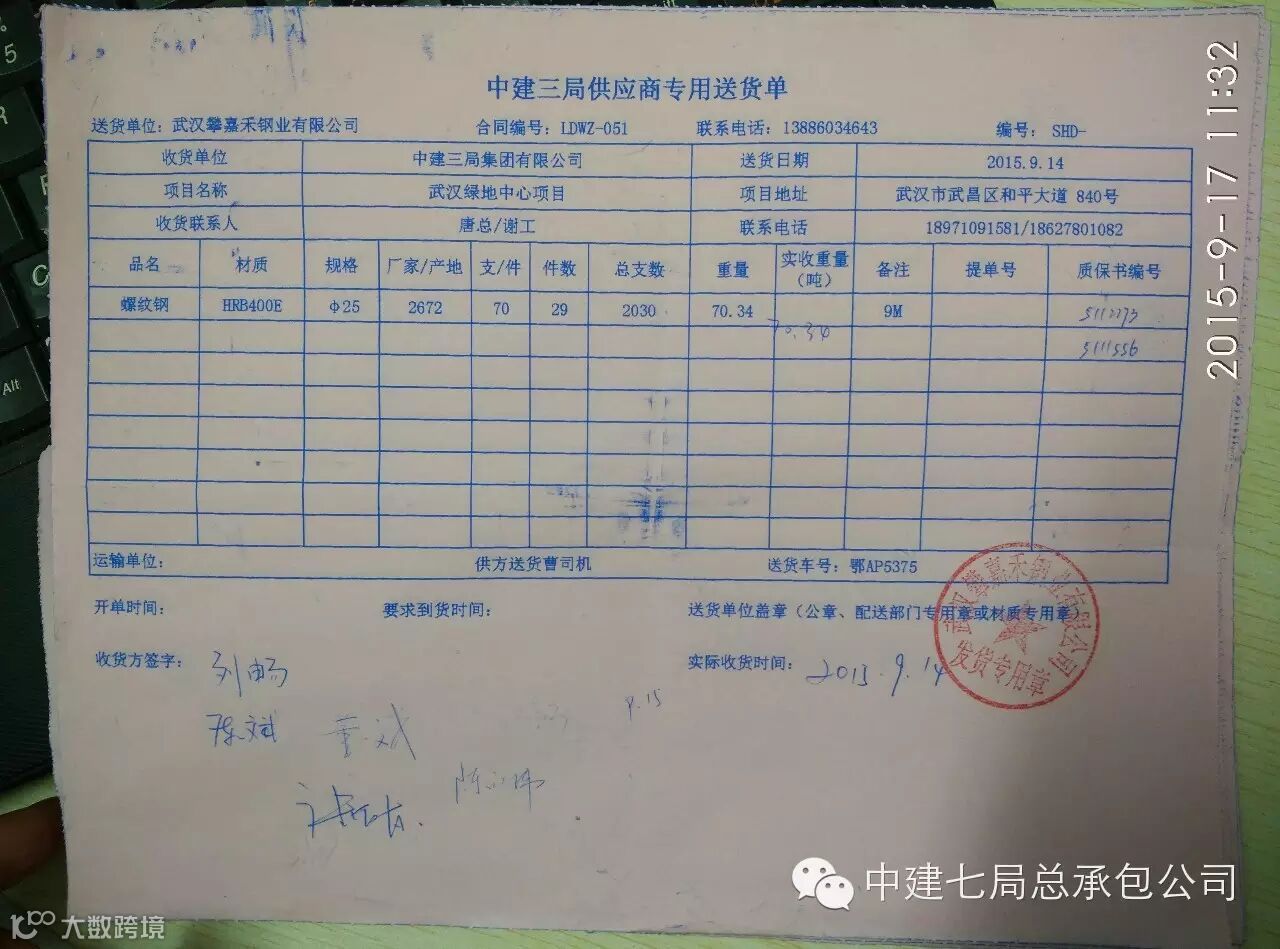 中建三局供应商专用送货单
送货单位：武汉攀嘉禾钢业有限公司 合同编号：LDWZ-051 联系电话：13886034643 编号： SHD-
收货单位 中建三局集团有限公司 送货日期 2015.9.14
项目名称 武汉绿地中心项目 项目地址 武汉市武昌区和平大道 840号
收货联系人 唐总/谢工 联系电话 18971091581/18627801082
品名 材质 规格 厂家/产地 支/件 件数 总支数 重量 实收重量（吨） 备注 提单号 质保书编号
螺纹钢 HRB400E φ25 2672 70 29 2030 70.34 70.34 9M 5112273
5111556
运输单位： 供方送货曹司机 送货车号：鄂AP5375
开单时间： 要求到货时间： 送货单位盖章（公章、配送部门专用章或材质专用章）
收货方签字： 刘畅 实际收货时间： 2015.9.14
9.15
陈文斌
武汉攀嘉禾钢业有限公司
发货专用章
2015-9-17 11:32
中建七局总承包公司
大数跨境
5
Alt